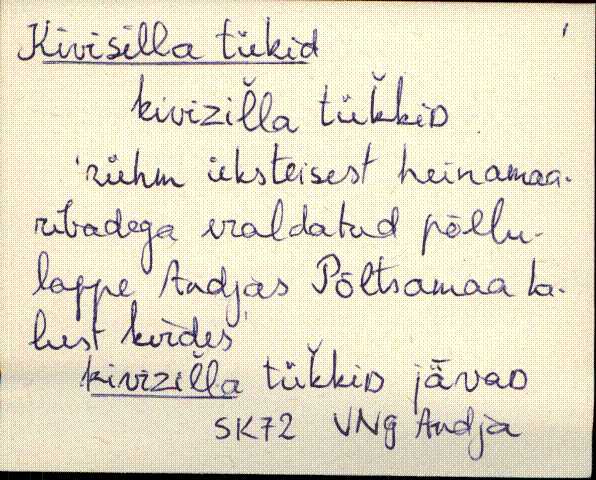 Kivisilla tükid
kiviziľľa tükkiD
'rühm üksteisest heinamaa-
ribadega eraldatud põllu-
lappe Andjas Põltsamaa ta-
lust kirdes'
kiviziľľa tükkiD jävaD
SK72 VNg Andja